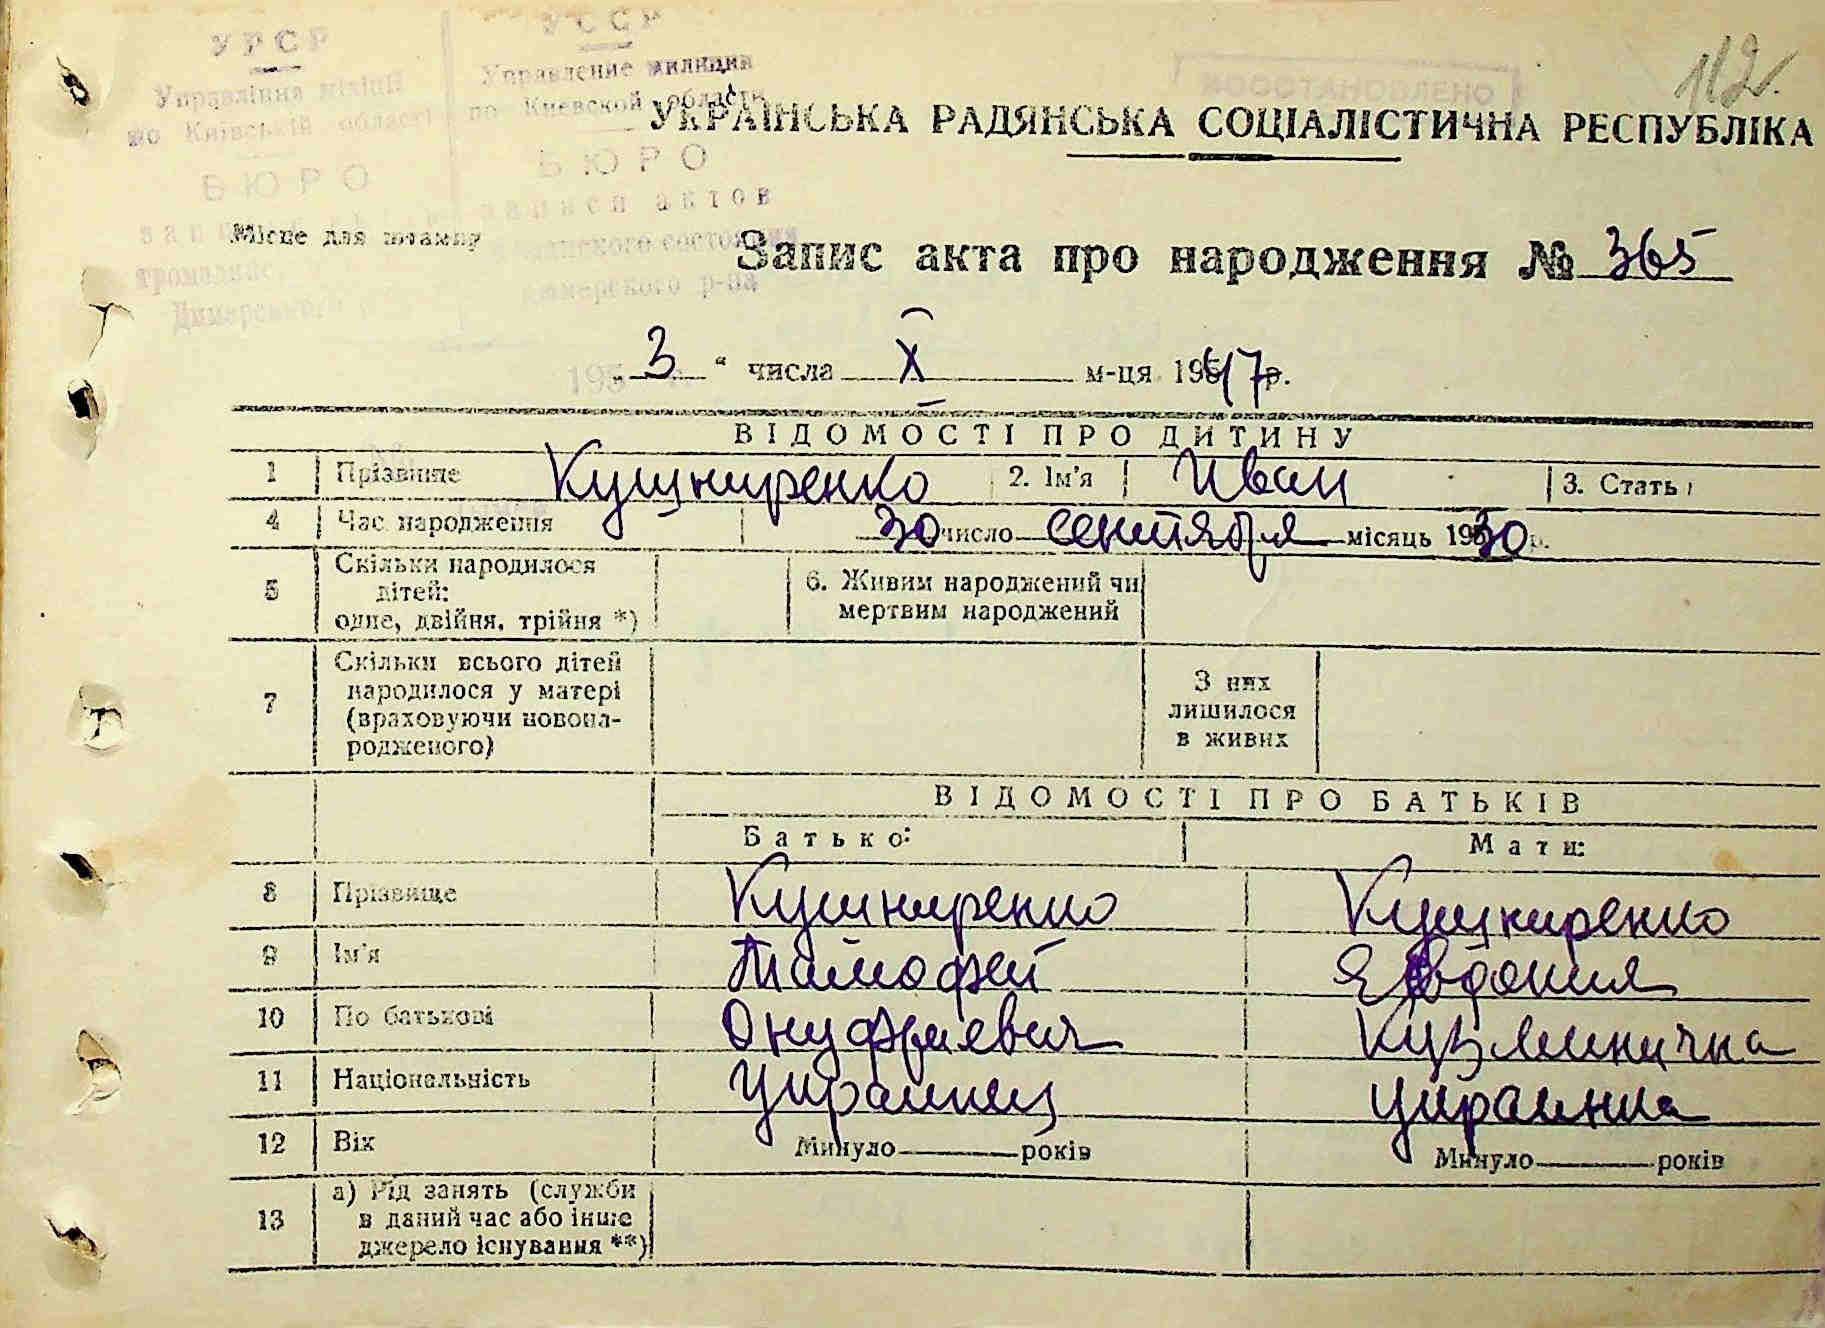 УРСР
Управління міліції
по Київській області
БЮРО
УССР
Управление милиции
по Киевской области
БЮРО
записи актов
гражданского состояния
Димерского р-на
ВОССТАНОВЛЕНО
112.
УКРАЇНСЬКА РАДЯНСЬКА СОЦІАЛІСТИЧНА РЕСПУБЛІКА
Місце для штампу
Запис акта про народження № 365
„ 3 “ числа X м-ця 1947 р.
ВІДОМОСТІ ПРО ДИТИНУ
1 Прізвище Кушниренко 2. Ім'я Иван 3. Стать
4 Час народження 30 число сентября місяць 1930 р.
5 Скільки народилося
дітей:
одне, двійня, трійня *)
6. Живим народжений чи
мертвим народжений
7 Скільки всього дітей
народилося у матері
(враховуючи новона-
родженого)
З них
лишилося
в живих
ВІДОМОСТІ ПРО БАТЬКІВ
Батько: Мати:
8 Прізвище Кушниренко Кушниренко
9 Ім'я Тимофей Евдокия
10 По батькові Онуфриевич Кузьминична
11 Національність Украинец Украинка
12 Вік Минуло років Минуло років
13 а) Рід занять (служби
в даний час або інше
джерело існування **)